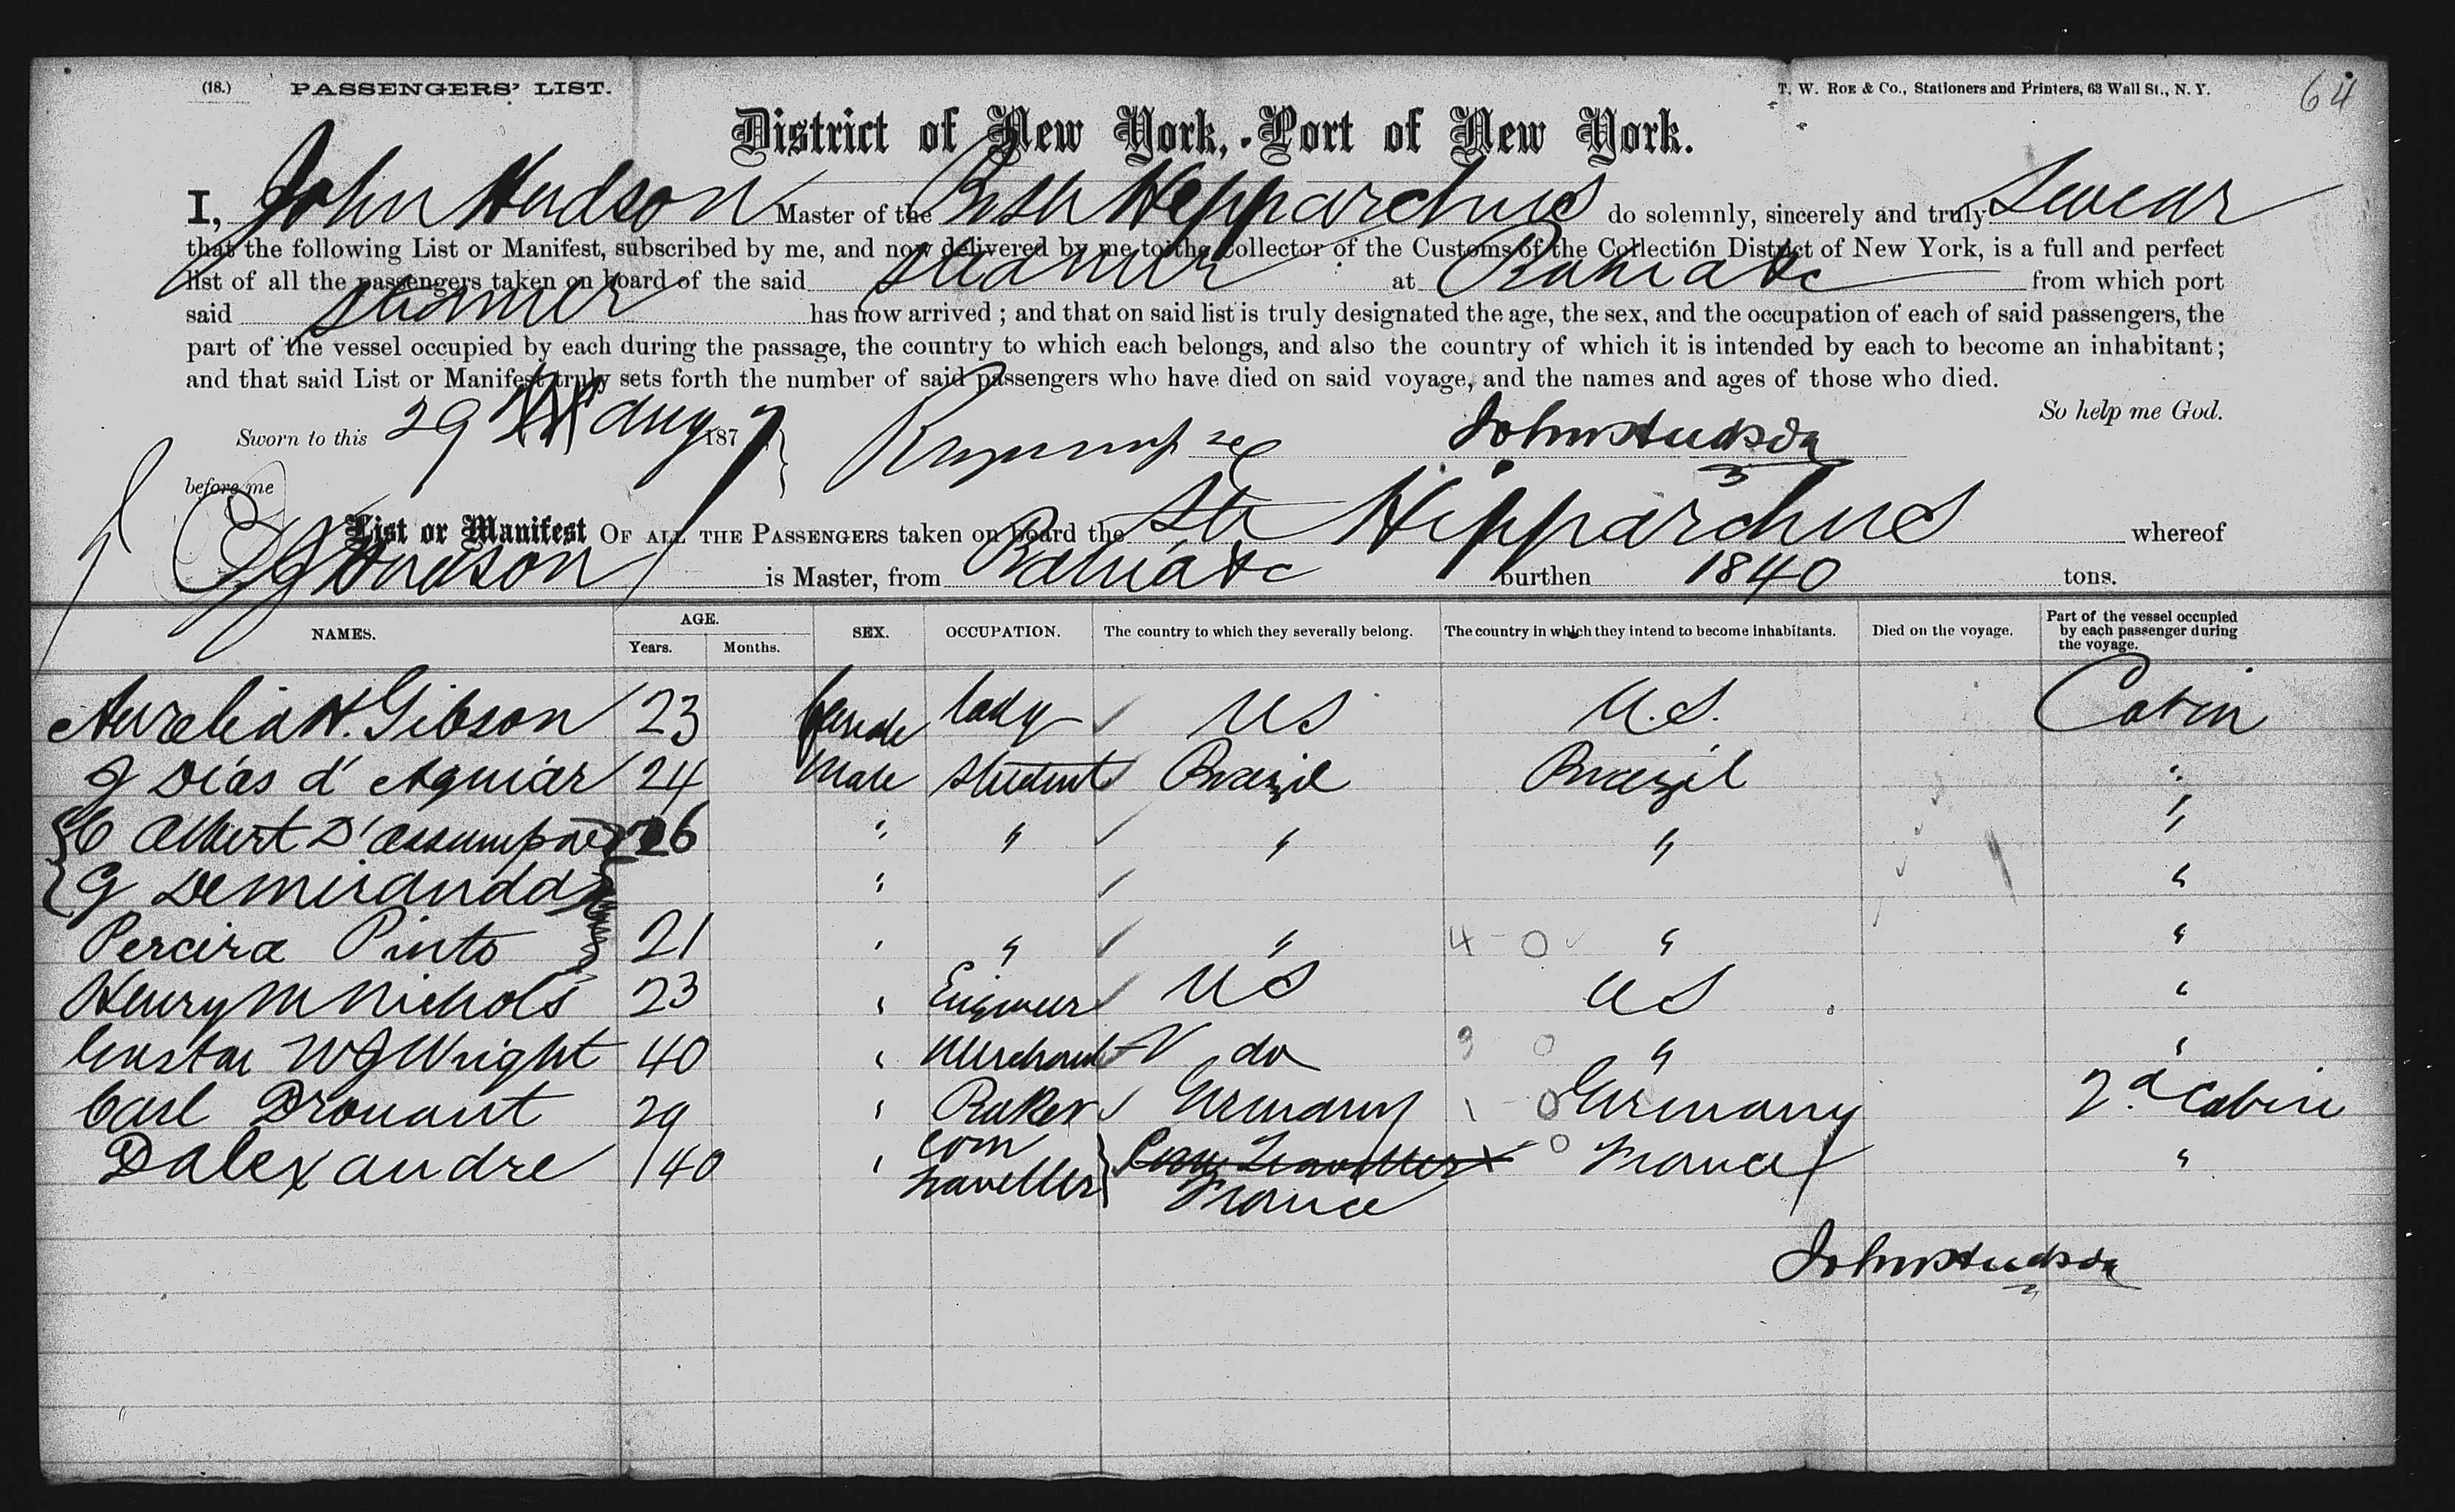 (18.) PASSENGERS' LIST. T. W. Roe & Co., Stationers and Printers, 63 Wall St., N. Y. 64
District of New York,-Port of New York.
I, John Hudson Master of the Hipparchus do solemnly, sincerely and truly Swear
that the following List or Manifest, subscribed by me, and now delivered by me to the Collector of the Customs of the Collection District of New York, is a full and perfect
list of all the passengers taken on board of the said steamer at Bahia &c from which port
said steamer has now arrived ; and that on said list is truly designated the age, the sex, and the occupation of each of said passengers, the
part of the vessel occupied by each during the passage, the country to which each belongs, and also the country of which it is intended by each to become an inhabitant ;
and that said List or Manifest truly sets forth the number of said passengers who have died on said voyage, and the names and ages of those who died.
So help me God.
Sworn to this 29 Aug 1877 John Hudson
before me
List or Manifest OF ALL THE PASSENGERS taken on board the Str Hipparchus whereof
Hudson is Master, from Bahia &c burthen 1840 tons.
NAMES. AGE. Years. Months. SEX. OCCUPATION. The country to which they severally belong. The country in which they intend to become inhabitants. Died on the voyage. Part of the vessel occupied by each passenger during the voyage.
Aurelia H. Gibson 23 female lady US U.S. Cabin
J Dias d' Aguiar 24 Male Student Brazil Brazil "
C Albert D'assumpcao 26 " " " " "
G De Miranda " "
Pereira Pinto 21 " " " 4 - 0 " "
Henry M Nichols 23 " Engineer US US "
W J Wright 40 " Merchant do 3 0 " "
Carl Drouant 29 " Baker Germany 1 - 0 Germany 2d Cabin
D alexandre 40 " Com Traveller Com Traveller France 0 France "
John Hudson